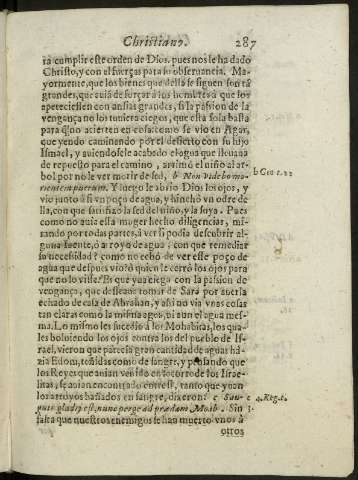 Christiano. 287
ra cumplir este orden de Dios, pues nos le ha dado
Christo, y con el fuerças para su obseruancia. Ma-
yormente, que los bienes que della se siguen son tã
grandes, que auia de forçar a los hombres a que los
apeteciessen con ansias grandes, si la passion de la
vengança no los tuuiera ciegos, que esta sola basta
para q̃ no acierten en cosa: como se vio en Agar,
que yendo caminando por el desierto con su hijo
Ismael, y auiendosele acabado el agua que lleuaua
de repuesto para el camino, arrimó el niño al ar-
bol por no le ver morir de sed, b Non videbo mo-
rientem puerum. Y luego le abrio Dios los ojos, y
vio junto a si vn poço de agua, y hinchò vn odre de
lla, con que satisfizo la sed del niño, y la suya. Pues
como no auia esta muger hecho diligencias, mi-
rando por todas partes, à ver si podia descubrir al-
guna fuente, ò arroyo de agua, con que remediar
su necessidad? como no echò de ver este poço de
agua que despues vio? ò quien le cerrò los ojos para
que no lo viesse? Es que yua ciega con la passion de
vengança, que desseaua tomar de Sara por auerla
echado de casa de Abrahan, y assi no via vnas cosas
tan claras como la misma agua, ni aun el agua mes-
ma. Lo mismo les sucedio a los Mohabitas, los qua-
les boluiendo los ojos contra los del pueblo de Is-
rael, vieron que parecia gran cantidad de aguas há-
zia Edom, teñidas como de sangre, y pensando que
los Reyes que auian venido en socorro de los Israe-
litas, se auian encontrado entre si, tanto que yuan
los arroyos bañados en sangre, dixeron: c San-
guis gladij est, nunc perge ad prædam Moab. Sin
falta que nuestros enemigos se han muerto vnos à
otros
b Gen. 21
c 4. Reg. c.
3.